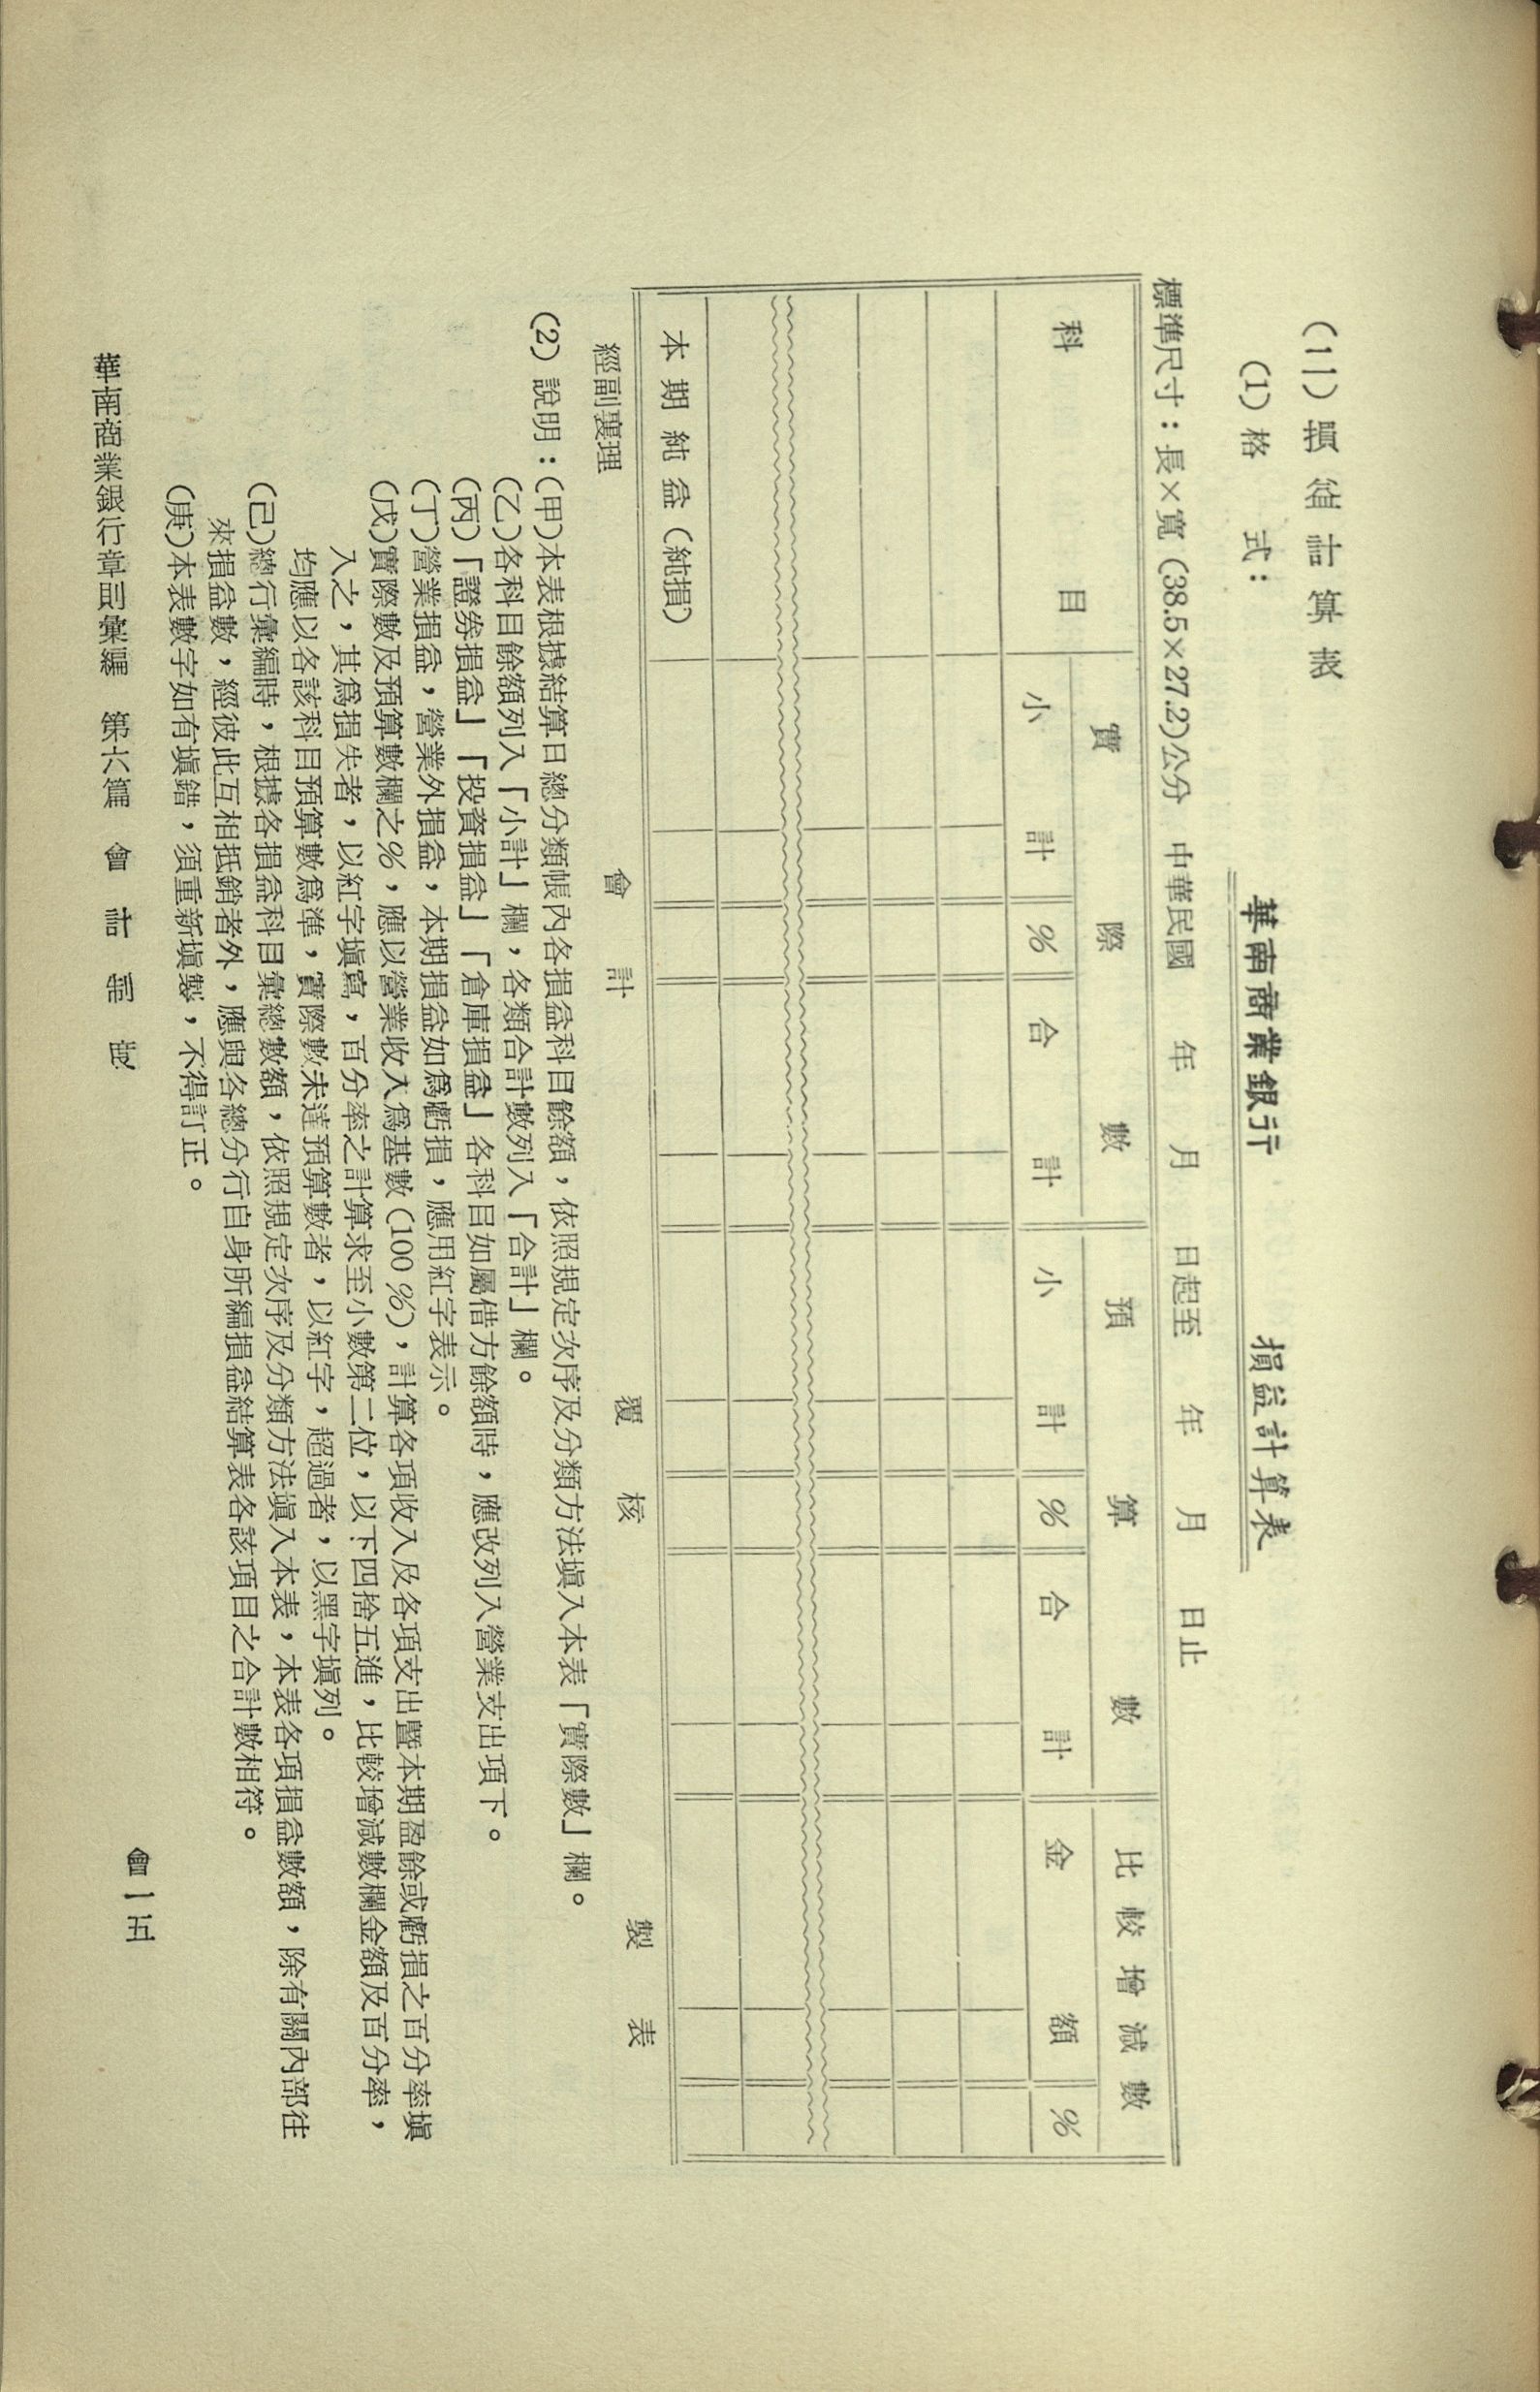 (11) 損益計算表
(1) 格式：
華南商業銀行　損益計算表
標準尺寸：長×寬 (38.5×27.2)公分　中華民國　年　月　日起至　年　月　日止
科目　實際數　預算數　比較增減數
小計　%　合計　小計　%　合計　金額　%
本期純益（純損）
經副襄理　會計　覆核　製表
(2) 說明：(甲)本表根據結算日總分類帳內各損益科目餘額，依照規定次序及分類方法塡入本表「實際數」欄。
(乙)各科目餘額列入「小計」欄，各類合計數列入「合計」欄。
(丙)「證券損益」「投資損益」「倉庫損益」各科目如屬借方餘額時，應改列入營業支出項下。
(丁)營業損益，營業外損益，本期損益如爲虧損，應用紅字表示。
(戊)實際數及預算數欄之%，應以營業收入爲基數(100%)，計算各項收入及各項支出暨本期盈餘或虧損之百分率塡
入之，其爲損失者，以紅字塡寫，百分率之計算求至小數第二位，以下四捨五進，比較增減數欄金額及百分率，
均應以各該科目預算數爲準，實際數未達預算數者，以紅字，超過者，以黑字塡列。
(己)總行彙編時，根據各損益科目彙總數額，依照規定次序及分類方法塡入本表，本表各項損益數額，除有關內部往
來損益數，經彼此互相抵銷者外，應與各總分行自身所編損益結算表各該項目之合計數相符。
(庚)本表數字如有塡錯，須重新塡製，不得訂正。
會計